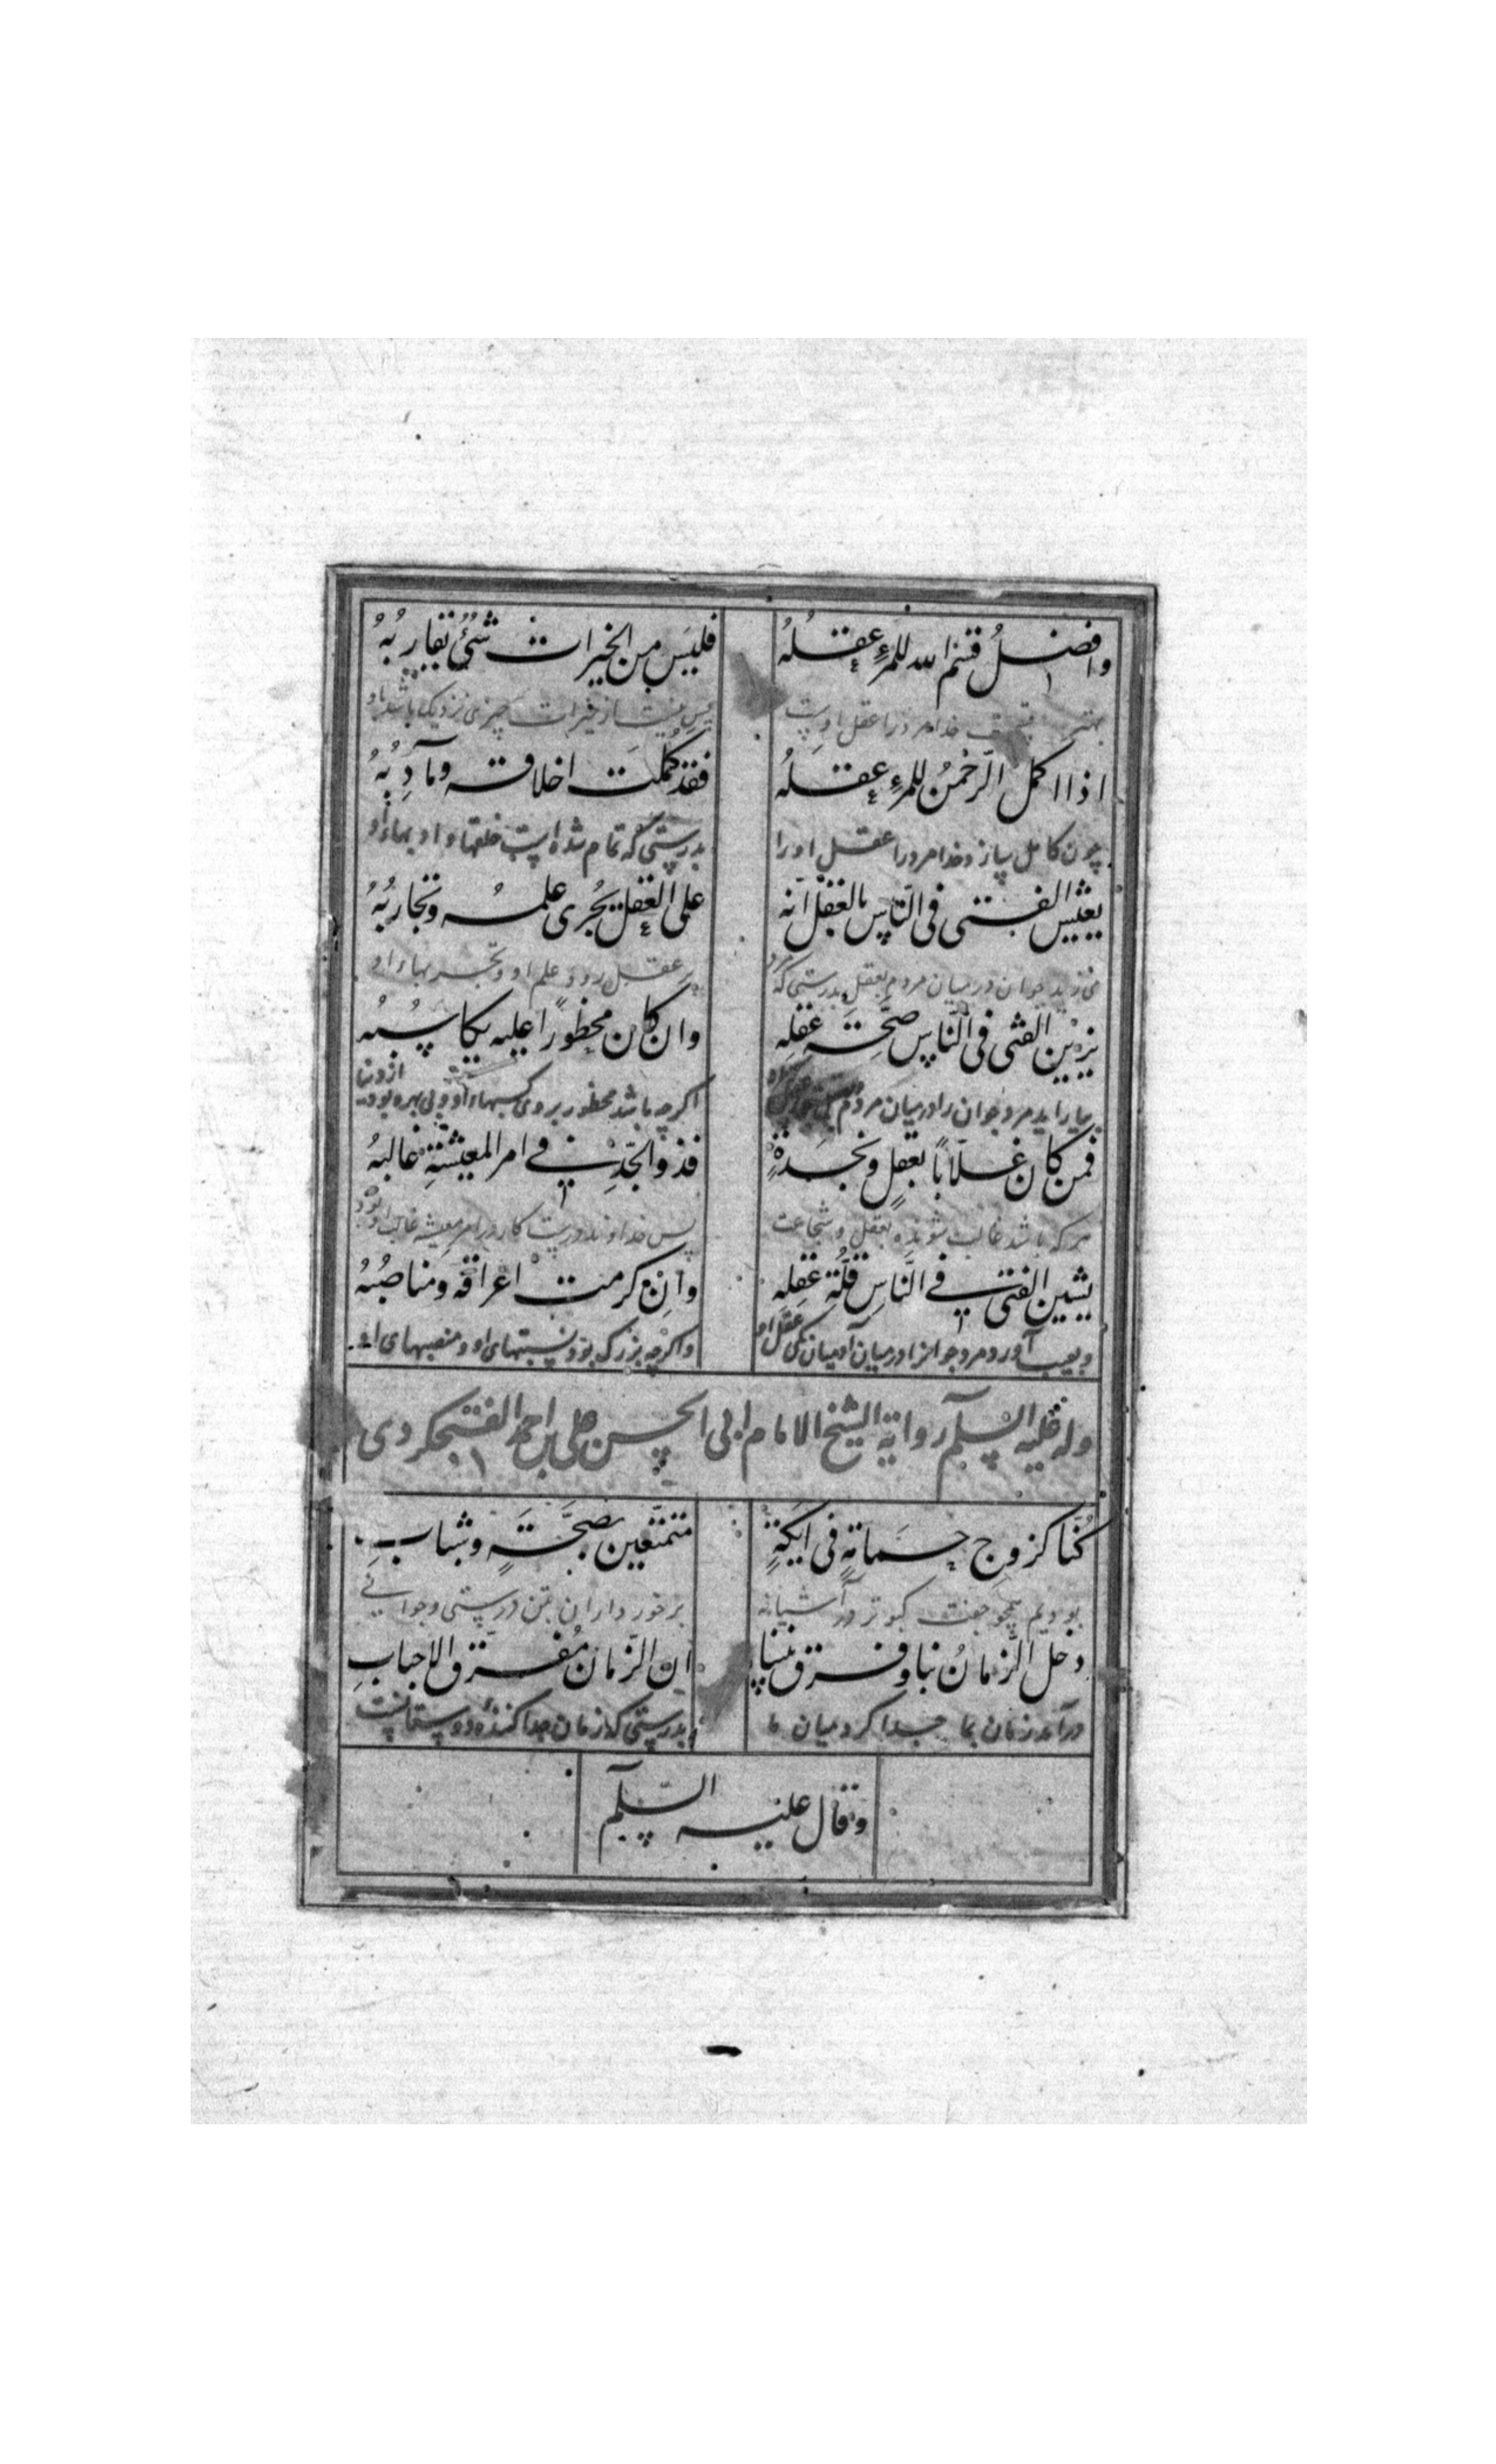 وافضل قسم الله للمرء عقله فليس من الخيرات شئ تقاربه
خدا مرد را عقل اوست پس نیست از خیرات چیزی نزدیک باشد باو
اذا اكمل الرحمن للمرء عقله فقد كملت اخلاقه ومآدبه
چون کامل سازد خدا مرد را عقل او را بدرستی که تمام شده است خلقها و ادبهاء او
يعيش الفتى فى الناس بالعقل انه على العقل يجرى علمه وتجاربه
می‌زید جوان در میان مردم بعقل بدرستی که بر عقل رود علم او و تجربهاء او
يزين الفتى فى الناس صحة عقله وان كان محظورا عليه مكاسبه
بیاراید مرد جوان را در میان مردم اگرچه باشد محظور بروی کسبهاء او
فمن كان غلابا بعقل ونجدة فذو الجد فى امر المعيشة غالبه
هر که باشد غالب شونده بعقل و شجاعت پس خداوند در امر معیشه غالب
يشين الفتى فى الناس قلة عقله وان كرمت اعراقه ومناصبه
و بعیب آورد مرد جوانرا در میان آدمیان کمی عقل او واگرچه بزرگ بود نسبتهای او و منصبهای او
وله عليه السلم رواية الشيخ الامام ابى الحسن على بن احمد الفنجكردى
كنا كزوج حمامة فى ايكة متمتعين بصحة وشباب
بودیم همچو جفت کبوتر در آشیانه برخورداران بتن درستی و جوانی
دخل الزمان بنا وفرق بيننا ان الزمان مفرق الاحباب
درآمد زمان بما جدا کرد میان ما بدرستی که زمان جدا کننده دوستانست
وقال عليه السلم